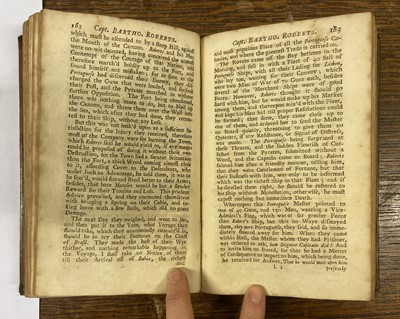 162 Capt. BARTHO. ROBERTS.
which must be ascended to by a steep Hill, against
the Mouth of the Cannon. And
were no way daunted, having conceived the
Contempt of the Courage of this Nation, and
therefore march'd boldly up to the Fort, and
found himself not mistaken; for as soon as the
Portuguese had discovered their Enemy, they dis-
charged the Guns they had loaded, and forsook
their Post, and the Pyrates marched in without
further Opposition. The Fort being abandoned,
there was nothing more to do, but to Nail up
the Cannons, and throw them down the Wall into
the Sea, which after they had done, they return-
ed to their Ship, without any Loss.
But this was not look'd upon as a sufficient Sa-
tisfaction for the Injury they received, therefore
most of the Company were for burning the Town,
which Roberts said he would yield to, if any means
could be proposed of doing it without their own
Destruction, for the Town had a securer Situation
than the Fort, a thick Wood coming almost close
to it, affording Cover to the Defendants, who
under such an Advantage, he told them, it was to
be fear'd, would fire and stand better to their Arms;
besides, that bare Houses would be but a slender
Reward for their Trouble and Loss. This prudent
Advice prevailed, and they contented themselves
with
Damage.
The next Day they weighed, and went to Sea,
and then put it to the Vote, what Voyage they
should take, which they unanimously consented to,
should be to try their Fortunes on the Coast
of Brasil. They made the best of their Way
thither, and nothing remarkable happening in
the Voyage, I shall take no Notice of them
till their Arrival off of Bahia, the richest
and
Capt. BARTHO. ROBERTS. 163
and most populous Place of all the Portuguese Co-
lonies, and where the greatest Trade is carried on.
The Rovers came off the Bay betimes in the
Morning, and fell in with a Fleet of 40 Sail of
Portuguese Ships, with all their Lading for Lisbon,
who lay only waiting for their Convoy; which
were two Men of War of 70 Guns each, besides
several of the Merchant Ships were of good
Force: However, Roberts thought it should go
hard with him, but he would make up his Market
among them, and thereupon mix'd with the Fleet,
and kept his Men hid till proper Resolutions could
be formed; that done, they came close up to
one of them, and ordered her to send the Master
on Board quietly, threatning to give them no
Quarters, if any Resistance, or Signal of Distress,
was made. The Portuguese being surprized at
these Threats, and the sudden Flourish of Cut-
lashes from the Pyrates, submitted without a
Word, and the Captain came on Board; Roberts
saluted him after a friendly manner, telling him,
that they were Gentlemen of Fortune, but that
their Business with him, was only to be informed
which was the richest Ship in that Fleet; and if
he directed them right, he should be restored to
his Ship without Molestation, otherwise, he must
expect nothing but immediate Death.
Whereupon this Portuguese Master pointed to
one of 40 Guns, and 150 Men, wearing a Vice-
Admiral's Flag, which was of far greater Force
than Roberts's Ship, but this no Ways dismayed
them, they were Portuguese, they said, and so imme-
diately steered away for him. When they came
within Hail, the Master whom they had Prisoner,
was ordered to ask, how Seignior Capitain did? And
to invite him on Board, for that he had a Matter
of Consequence to impart to him, which being done,
he returned for Answer, That he would wait upon him
L 2 presently